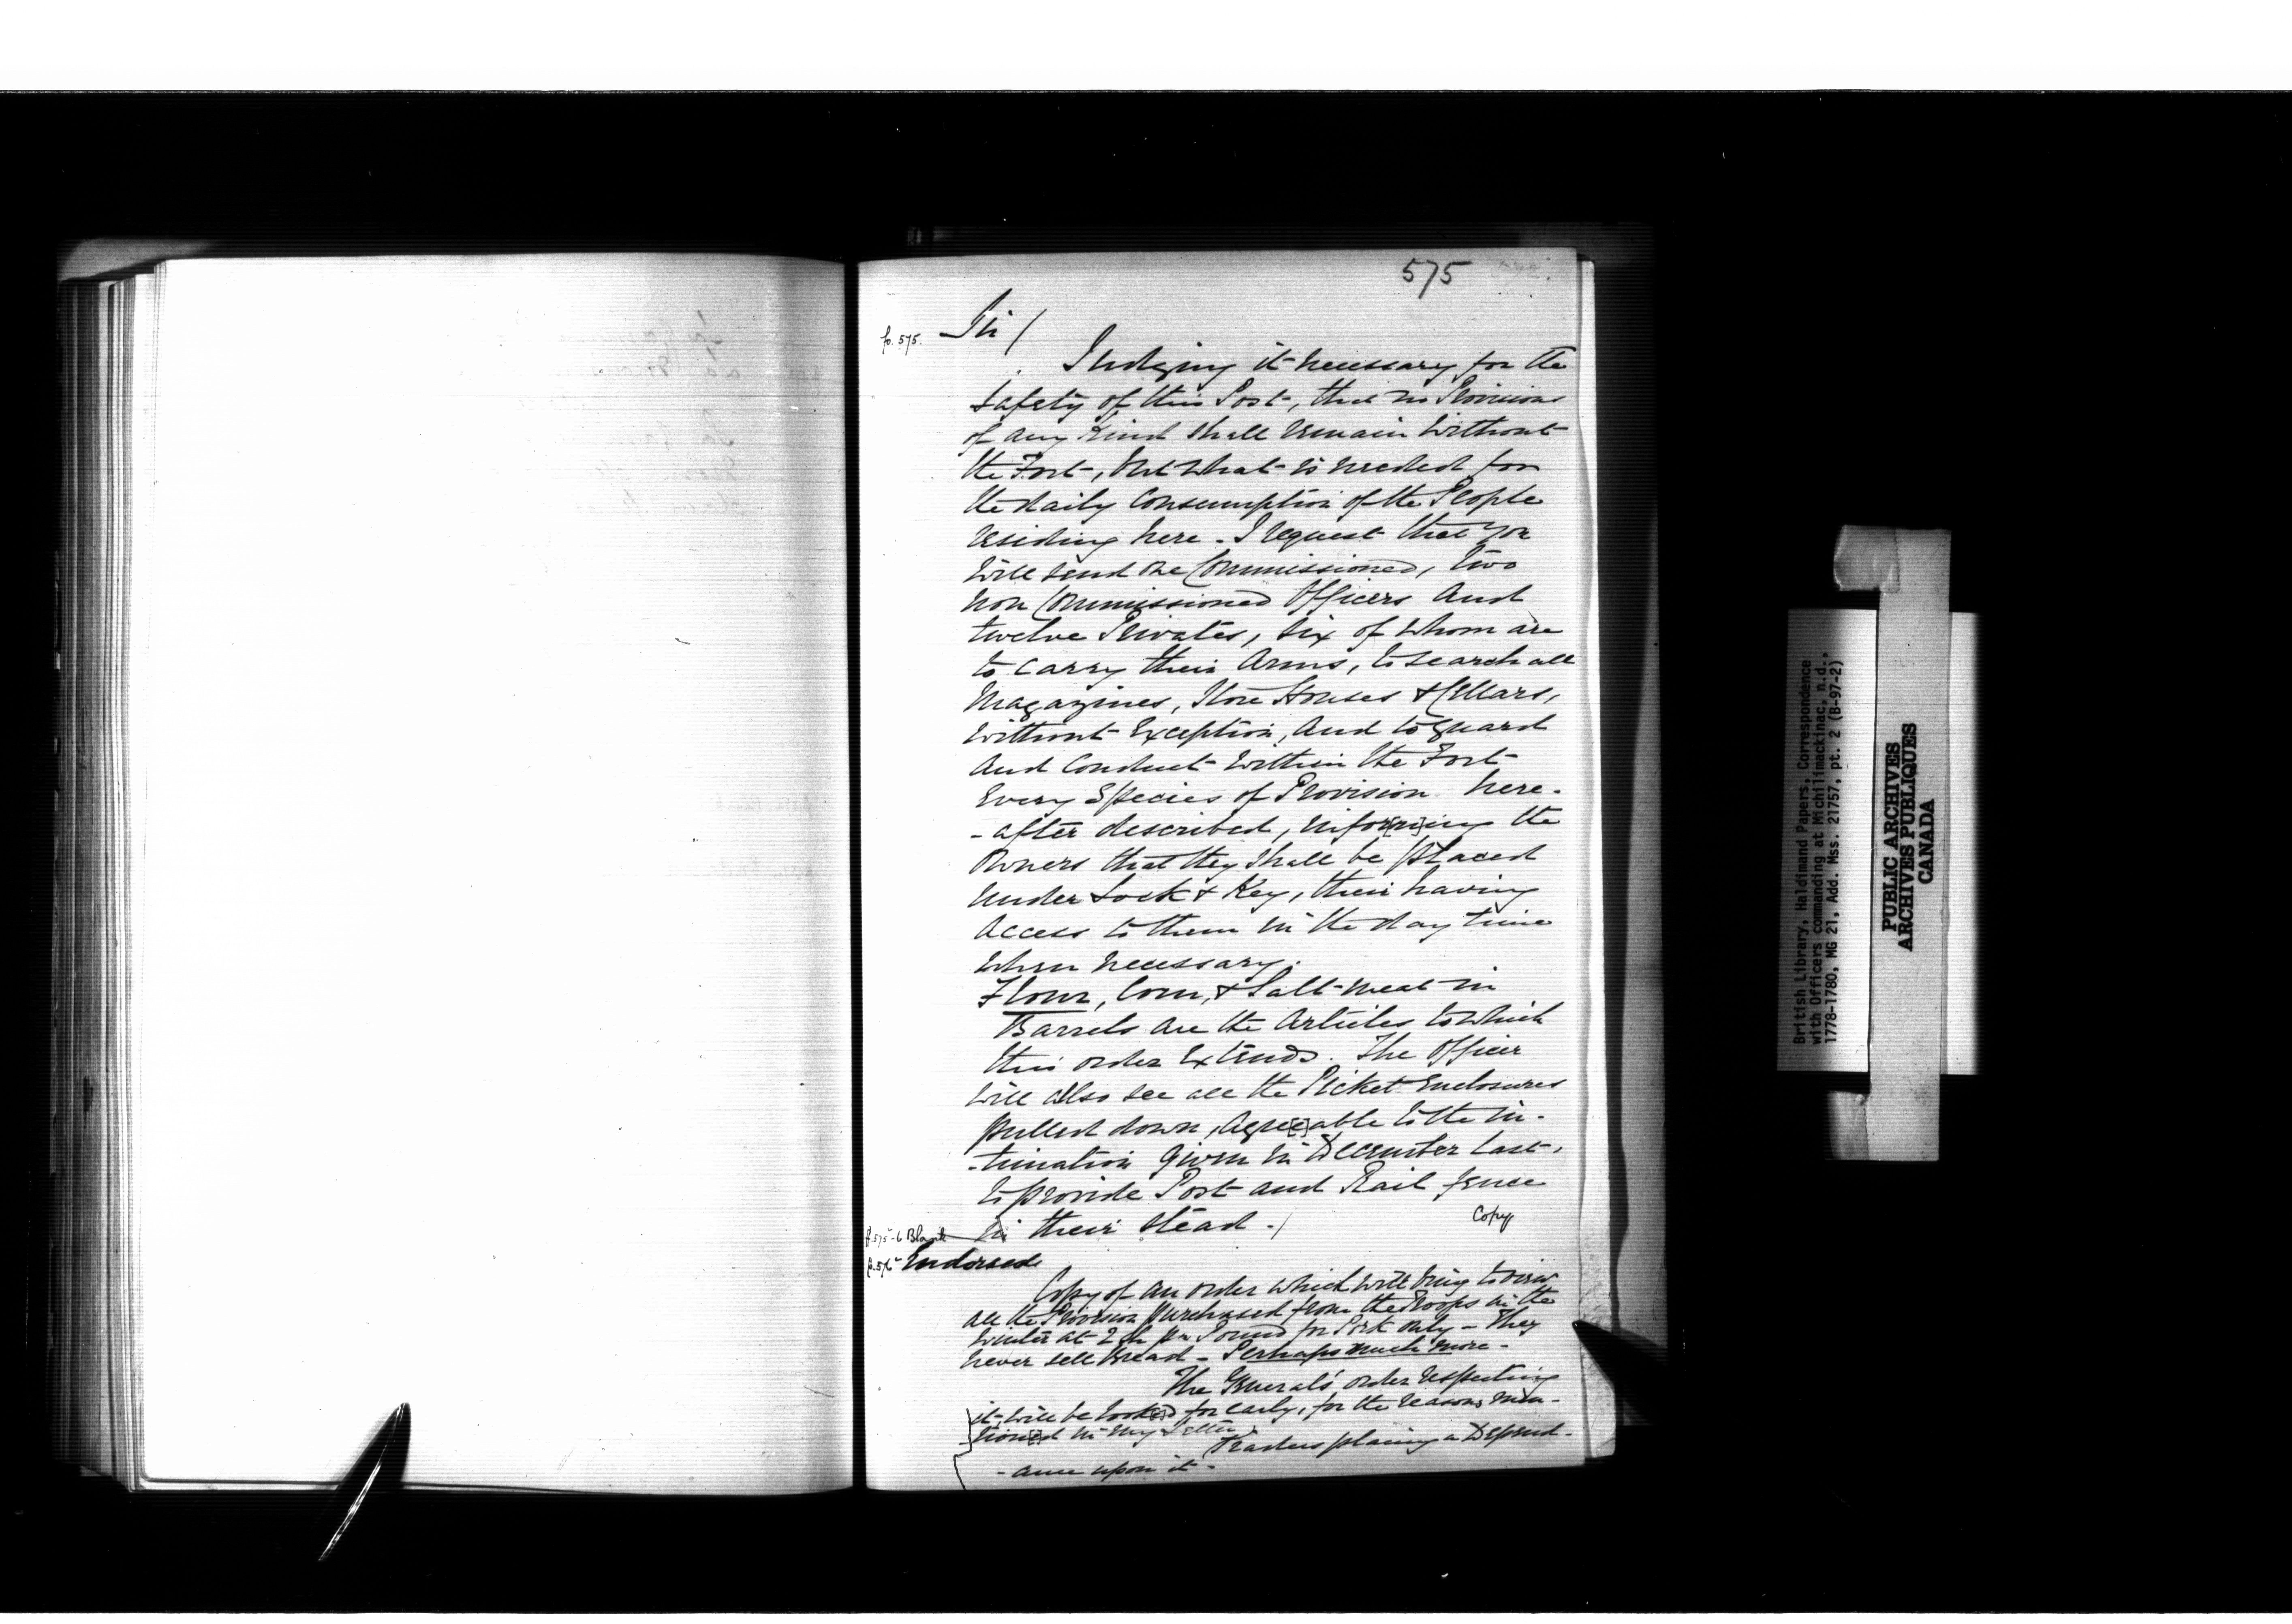 575
fo. 575.
Sir /
Judging it necessary for the
Safety of this Post, that no Provisions
of any Kind shall remain without
the Fort, but what is needed for
the daily Consumption of the People
residing here. I request that you
will send one Commissioned, two
non Commissioned Officers and
twelve Privates, six of whom are
to carry their Arms, to search all
Magazines, Store Houses & Cellars,
without Exception, and to guard
and Conduct within the Fort
Every Species of Provision here-
-after described, infor[m]ing the
Owners that they shall be placed
under Lock & Key, their having
Access to them in the day time
when necessary.
Flour, Corn, & Salt-meat in
Barrels are the Articles to which
this order Extends. The Officer
will also see all the Picket Enclosures
pulled down, agre[e]able to the in-
-timation given in December last,
to provide Post and Rail fence
in their stead -/
Copy
f. 575-b Blank
fo. 576 Endorsed
Copy of an order which will bring to view
all the Provision purchased from the Troops in the
winter at 2 sh pr Pound for Pork only - They
never sell Bread - Perhaps much more -
The General's order respecting
it, will be look[e]d for early, for the reasons men-
-tion[e]d in my Letter.
Traders placing a Depend-
-ance upon it -
British Library, Haldimand Papers, Correspondence
with Officers commanding at Michilimackinac, n.d.,
1778-1780, MG 21, Add. Mss. 21757, pt. 2 (B-97-2)
PUBLIC ARCHIVES
ARCHIVES PUBLIQUES
CANADA